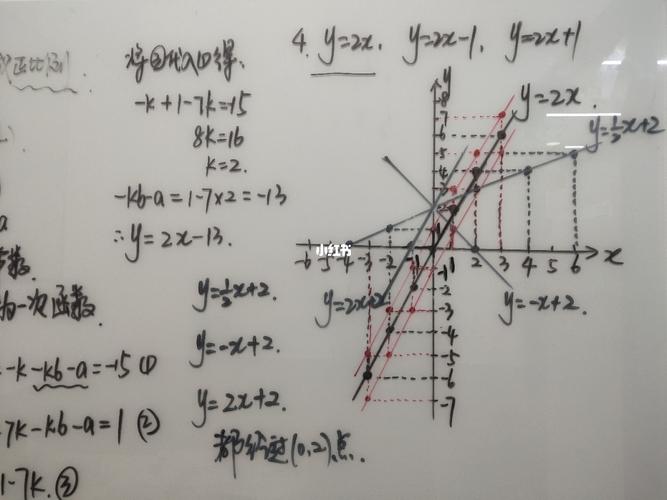 将②代入①得:
-k+1-7k=-15
8k=16
k=2.
-kb-a=1-7×2=-13
∴y=2x-13.
y=½x+2.
y=-x+2.
y=2x+2.
都经过(0,2)点.
数
为一次函数
-k-kb-a=-15①
7k-kb-a=1②
1-7k.③
4. y=2x, y=2x-1, y=2x+1
y
y=2x.
y=½x+2
-8
-7
-6
-5
-4
小红书
-6 -5 -4 -3 -2 -1 1 2 3 4 5 6 x
-1
-2
-3
-4
-5
-6
-7
y=2x+2
y=-x+2.